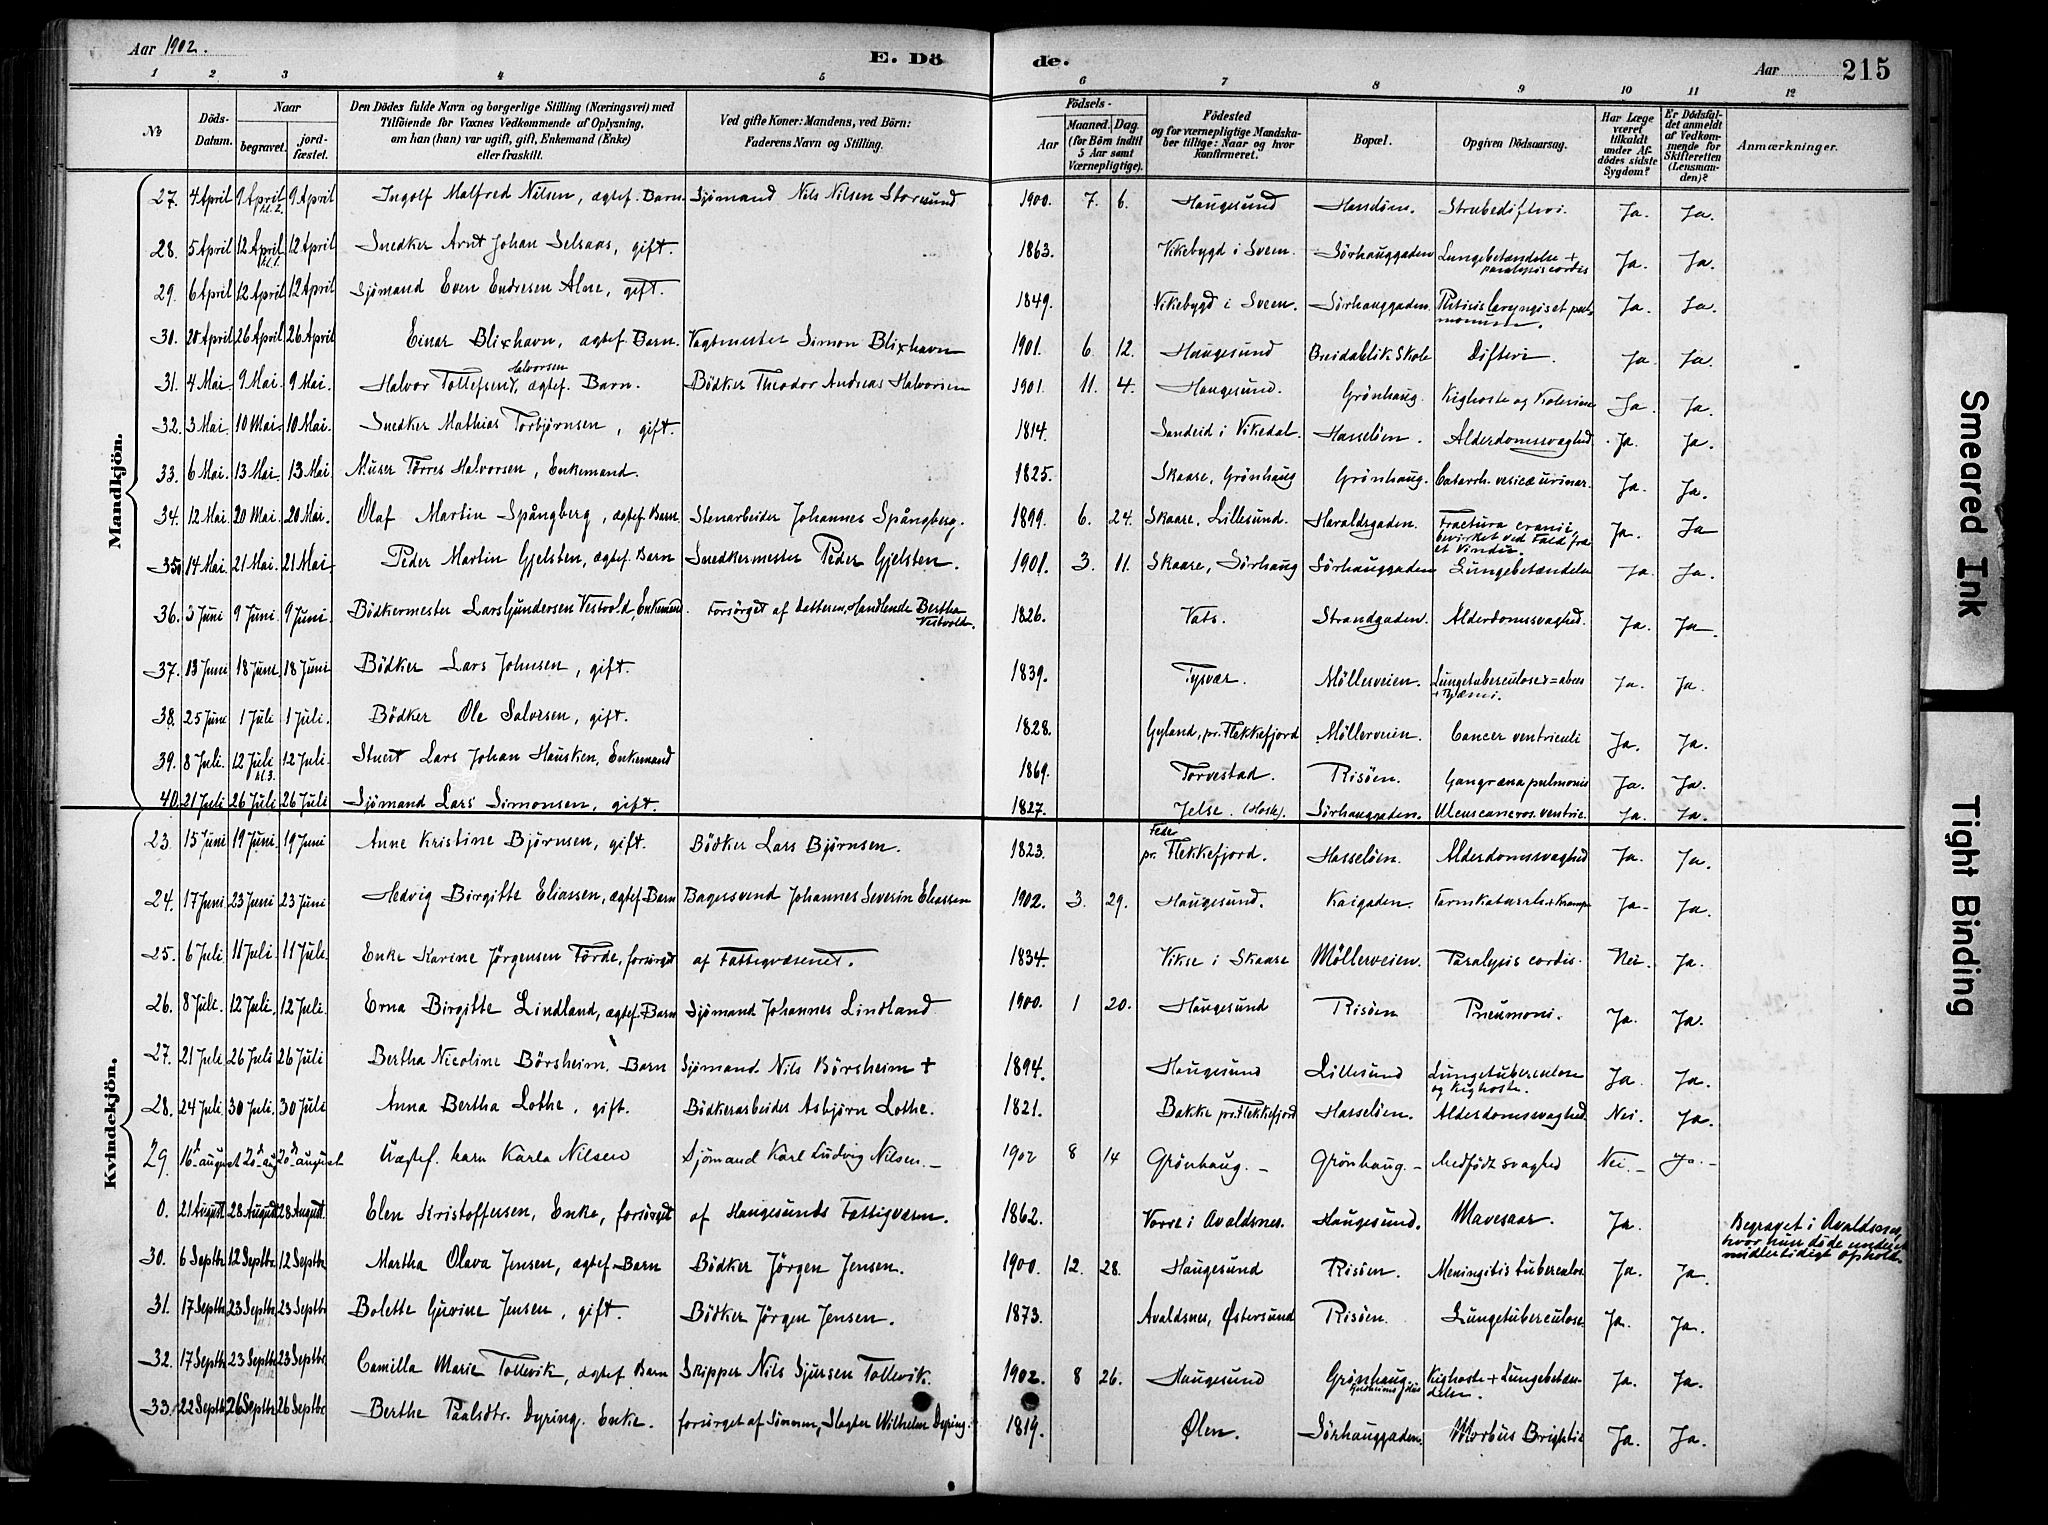 Aar 1902.
E. Dö
de.
Aar
215
1 2 3 4 5 6 7 8 9 10 11 12
No
Döds-Datum.
Naar
begravet.
jord-fæstet.
Den Dödes fulde Navn og borgerlige Stilling (Næringsvei) med
Tilföiende for Voxnes Vedkommende af Oplysning,
om han (hun) var ugift, gift, Enkemand (Enke)
eller fraskilt.
Ved gifte Koner: Mandens, ved Börn:
Faderens Navn og Stilling.
Födsels-
Aar
Maaned. Dag.
(for Börn indtil
5 Aar samt
Værnepligtige).
Födested
og for værnepligtige Mandska-
ber tillige: Naar og hvor
konfirmeret.
Bopæl.
Opgiven Dödsaarsag.
Har Læge
været
tilkaldt
under Af-
dödes sidste
Sygdom?
Er Dödsfal-
det anmeldt
af Vedkom-
mende for
Skifteretten
(Lensman-
den)?
Anmærkninger.
Mandkjön.
27. 4 April 9 April kl. 2. 9 April Ingolf Malfred Nilsen, ægtef. Barn Sjömand Nils Nilsen Storesund 1900. 7. 6. Haugesund Strubedifteri. Ja. Ja.
28. 5 April 12 April kl. 1. 12 April Snedker Arnt Johan Selsaas, gift. 1863. Vikebygd i Sveen. Sörhauggaden Lungebetændelse + paralysis cordis Ja. Ja.
29. 6 April 12 April 12 April Sjömand Even Endresen Alne, gift. 1849. Vikebygd i Sveen. Sörhauggaden. Ja. Ja.
30. 20 April 26 April 26 April Einar Blixhavn, ægtef. Barn. Vagtmester Simon Blixhavn 1901. 6. 12. Haugesund Breidablik Skole Difteri. Ja. Ja.
31. 4 Mai 9 Mai. 9 Mai. Halvor Tollefsen Halvorsen, ægtef. Barn. Bödker Theodor Andreas Halvorsen 1901. 11. 4. Haugesund. Grönhaug. Kighoste og Ja. Ja.
32. 3 Mai. 10 Mai. 10 Mai. Snedker Mathias Torbjørnsen, gift. 1814. Sandeid i Vikedal. Hasselöen. Alderdomssvaghed. Ja. Ja.
33. 6 Mai. 13 Mai. 13 Mai Murer Törres Halvorsen, Enkemand. 1825. Skaare, Grönhaug Grönhaug. Catarrh. vesicæ urinar. Ja. Ja.
34. 12 Mai 20 Mai. 20 Mai. Olaf Martin Spångberg, ægtef. Barn. Stenarbeider Johannes Spångberg. 1899. 6. 24. Skaare, Lillesund. Haraldsgaden. Fractura cranii, bevirket ved Fald fra et Vindu. Ja. Ja
35. 14 Mai. 21 Mai. 21 Mai Peder Martin Gjelsten, ægtef. Barn Snedkermester Peder Gjelsten. 1901. 3. 11. Skaare, Sörhaug Sörhauggaden Lungebetændelse Ja. Ja.
36. 3 Juni 9 Juni. 9 Juni. Bödkermester Lars Gundersen Vestvold, Enkemand. Forsörget af Datteren, Handlende Bertha Vestvold. 1826. Vats. Strandgaden. Alderdomssvaghed. Ja. Ja.
37. 13 Juni 18 Juni 18 Juni Bödker Lars Johnsen, gift. 1839. Tysvær. Möllerveien. Lungetuberculose Ja. Ja.
38. 25 Juni 1 Juli 1 Juli. Bödker Ole Salvesen, gift. 1828. Gyland, pr. Flekkefjord Möllerveien. Cancer ventriculi Ja. Ja.
39. 8 Juli. 12 Juli kl. 3. 12 Juli. Stuert Lars Johan Hausken, Enkemand 1869. Torvestad. Risöen. Gangræna pulmonis Ja. Ja.
40. 21 Juli 26 Juli 26 Juli Sjömand Lars Simonsen, gift. 1827. Jelse. Sörhauggaden. Ulcus cancros. ventric. Ja. Ja.
Kvindekjön.
23. 15 Juni 19 Juni. 19 Juni Anne Kristine Bjørnsen, gift. Bödker Lars Bjørnsen. 1823. Fede pr. Flekkefjord. Hasselöen. Alderdomssvaghed Ja. Ja.
24. 17 Juni 23 Juni 23 Juni Hedvig Birgitte Eliassen, ægtef. Barn Bagersvend Johannes Severin Eliassen 1902. 3. 29. Haugesund. Kaigaden. Tarmkatarrh + Krampe Ja. Ja.
25. 6 Juli. 11 Juli. 11 Juli. Enke Karine Jørgensen Förde, forsörget af Fattigvæsenet. 1834. Vikse i Skaare Möllerveien. Paralysis cordis. Nei. Ja.
26. 8 Juli. 12 Juli. 12 Juli. Erna Birgitte Lindland, ægtef. Barn Sjömand Johannes Lindland 1900. 1 20. Haugesund Risöen Pneumoni. Ja. Ja.
27. 21 Juli 26 Juli 26 Juli Bertha Nicoline Börsheim. Barn Sjömand Nils Börsheim + 1894. Haugesund Lillesund Lungetuberculose og Kighoste. Ja. Ja.
28. 24 Juli. 30 Juli. 30 Juli Anna Bertha Lothe, gift. Bödkerarbeider Asbjørn Lothe. 1821. Bakke pr. Flekkefjord Hasselöen. Alderdomssvaghed. Nei. Ja.
29 16 august 20 aug 20 august Uægtef. barn Karla Nilsen Sjömand Karl Ludvig Nilsen. 1902 8 14 Grönhaug. Grönhaug Medfödt svaghed Nei. Ja.
0. 21 August 28 August 28 August. Elen Kristoffersen, Enke, forsörget af Haugesunds Fattigvæsen. 1862. Vorre i Avaldsnes. Haugesund. Mavesaar. Ja. Begravet i Avaldsnes, hvor hun döde under et midlertidigt ophold.
30. 6 Septbr 12 Septbr. 12 Septbr. Martha Olava Jensen, ægtef. Barn Bödker Jörgen Jensen. 1900. 12. 28. Haugesund Risöen. Meningitis tuberculos. Ja. Ja.
31. 17 Septbr 23 Septbr. 23 Septbr. Bolette Gurine Jensen, gift. Bödker Jörgen Jensen. 1873. Avaldsnes, Østersund Risöen. Lungetuberculose Ja. Ja.
32. 17 Septbr 23 Septbr 23 Septbr. Camilla Marie Tollevik, ægtef. Barn Skipper Nils Sjursen Tollevik. 1902. 8 26. Haugesund Grönhaug Kighoste + Lungebetændelse. Ja. Ja.
33. 22 Septbr 26 Septbr 26 Septbr. Berthe Paalsdtr. Dyring. Enke. forsörget af Sönnen, Slagter Wilhelm Dyring. 1819. Ølen. Sörhauggaden. Morbus Brightii Ja. Ja.
Smeared Ink
Tight Binding